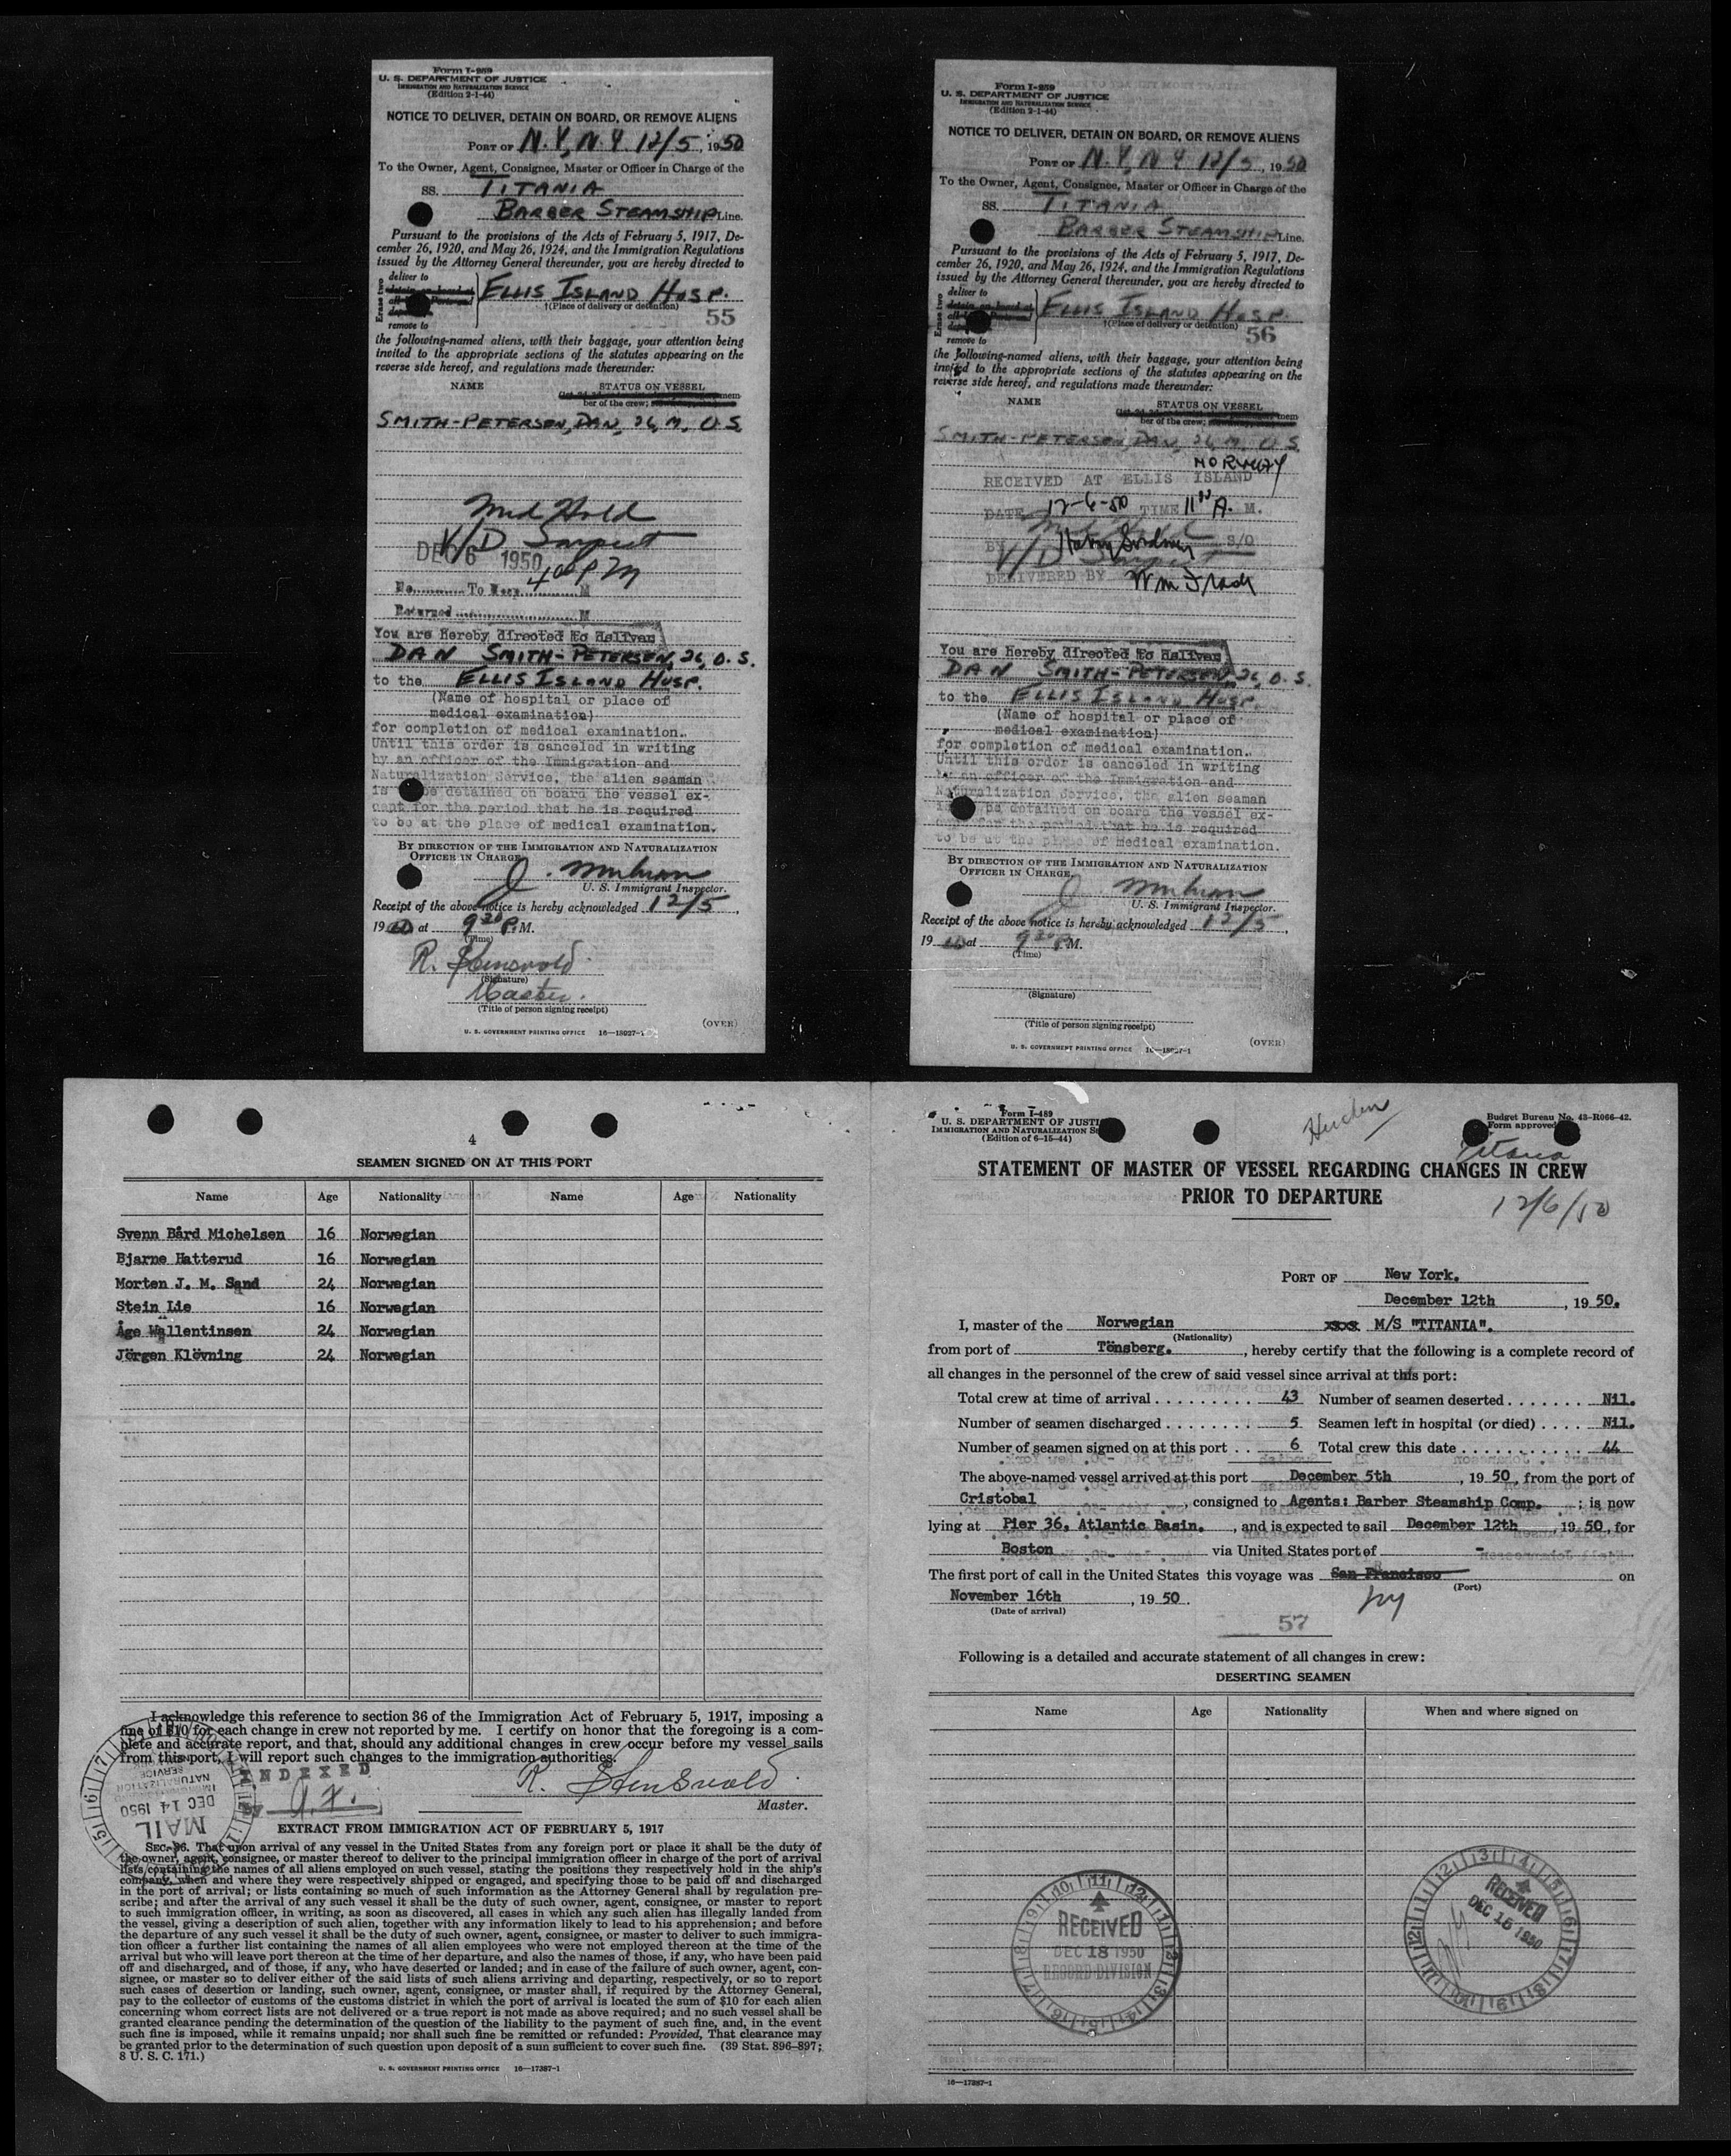 Form I-259
U. S. DEPARTMENT OF JUSTICE
IMMIGRATION AND NATURALIZATION SERVICE
(Edition 2-1-44)
NOTICE TO DELIVER, DETAIN ON BOARD, OR REMOVE ALIENS
PORT OF N.Y, N.Y. 12/5, 1950
To the Owner, Agent, Consignee, Master or Officer in Charge of the
SS. TITANIA
BARBER STEAMSHIP Line.
Pursuant to the provisions of the Acts of February 5, 1917, De-
cember 26, 1920, and May 26, 1924, and the Immigration Regulations
issued by the Attorney General thereunder, you are hereby directed to
Erase two
deliver to
detain on board at
remove to
ELLIS ISLAND HOSP.
†(Place of delivery or detention)
55
the following-named aliens, with their baggage, your attention being
invited to the appropriate sections of the statutes appearing on the
reverse side hereof, and regulations made thereunder:
NAME STATUS ON VESSEL
mem
ber of the crew;
SMITH-PETERSEN, DAN, 26, M, O.S.
Med Hold
V/D Suspect
DEC 6 1950
4 00 PM
No. To M
Returned M
You are hereby directed to deliver
DAN SMITH-PETERSEN, 26, O.S.
to the ELLIS ISLAND HOSP.
(Name of hospital or place of
medical examination)
for completion of medical examination.
Until this order is canceled in writing
by an officer of the Immigration and
Naturalization Service, the alien seaman
is be detained on board the vessel ex-
cept for the period that he is required
to be at the place of medical examination.
BY DIRECTION OF THE IMMIGRATION AND NATURALIZATION
OFFICER IN CHARGE,
J.
U. S. Immigrant Inspector.
Receipt of the above notice is hereby acknowledged 12/5,
1950 at 9 30 P.M.
(Time)
R. Stensvold
(Signature)
Master.
(Title of person signing receipt)
U. S. GOVERNMENT PRINTING OFFICE 16—18027-1
(OVER)
Form I-259
U. S. DEPARTMENT OF JUSTICE
IMMIGRATION AND NATURALIZATION SERVICE
(Edition 2-1-44)
NOTICE TO DELIVER, DETAIN ON BOARD, OR REMOVE ALIENS
PORT OF N.Y, N Y 12/5, 1950
To the Owner, Agent, Consignee, Master or Officer in Charge of the
SS. TITANIA
BARBER STEAMSHIP Line.
Pursuant to the provisions of the Acts of February 5, 1917, De-
cember 26, 1920, and May 26, 1924, and the Immigration Regulations
issued by the Attorney General thereunder, you are hereby directed to
Erase two
deliver to
detain on board at
remove to
ELLIS ISLAND HOSP.
†(Place of delivery or detention)
56
the following-named aliens, with their baggage, your attention being
invited to the appropriate sections of the statutes appearing on the
reverse side hereof, and regulations made thereunder:
NAME STATUS ON VESSEL
mem
ber of the crew;
SMITH-PETERSEN, DAN, 26, M, O.S.
NORWAY
RECEIVED AT ELLIS ISLAND
DATE 12-6-50 TIME 11 A. M.
BY S/O
V/D Suspect
DELIVERED BY Wm
You are hereby directed to deliver
DAN SMITH-PETERSEN, 26, O.S.
to the ELLIS ISLAND HOSP.
(Name of hospital or place of
medical examination)
for completion of medical examination.
Until this order is canceled in writing
by an officer of the Immigration and
Naturalization Service, the alien seaman
be detained on board the vessel ex-
cept for the period that he is required
to be at the place of medical examination.
BY DIRECTION OF THE IMMIGRATION AND NATURALIZATION
OFFICER IN CHARGE,
J.
U. S. Immigrant Inspector.
Receipt of the above notice is hereby acknowledged 12/5,
1950 at 9 30 P.M.
(Time)
(Signature)
(Title of person signing receipt)
U. S. GOVERNMENT PRINTING OFFICE 16—18027-1
(OVER)
4
SEAMEN SIGNED ON AT THIS PORT
Name Age Nationality Name Age Nationality
Svenn Bård Michelsen 16 Norwegian
Bjarne Hatterud 16 Norwegian
Morten J. M. Sand 24 Norwegian
Stein Lie 16 Norwegian
Åge Wallentinsen 24 Norwegian
Jörgen Klövning 24 Norwegian
I acknowledge this reference to section 36 of the Immigration Act of February 5, 1917, imposing a
fine of $10 for each change in crew not reported by me. I certify on honor that the foregoing is a com-
plete and accurate report, and that, should any additional changes in crew occur before my vessel sails
from this port, I will report such changes to the immigration authorities.
INDEXED
R. Stensvold
Master.
MAIL
DEC 14 1950
IMMIGRATION
NATURALIZATION
SERVICE
EXTRACT FROM IMMIGRATION ACT OF FEBRUARY 5, 1917
SEC. 36. That upon arrival of any vessel in the United States from any foreign port or place it shall be the duty of
the owner, agent, consignee, or master thereof to deliver to the principal immigration officer in charge of the port of arrival
lists containing the names of all aliens employed on such vessel, stating the positions they respectively hold in the ship's
company, when and where they were respectively shipped or engaged, and specifying those to be paid off and discharged
in the port of arrival; or lists containing so much of such information as the Attorney General shall by regulation pre-
scribe; and after the arrival of any such vessel it shall be the duty of such owner, agent, consignee, or master to report
to such immigration officer, in writing, as soon as discovered, all cases in which any such alien has illegally landed from
the vessel, giving a description of such alien, together with any information likely to lead to his apprehension; and before
the departure of any such vessel it shall be the duty of such owner, agent, consignee, or master to deliver to such immigra-
tion officer a further list containing the names of all alien employees who were not employed thereon at the time of the
arrival but who will leave port thereon at the time of her departure, and also the names of those, if any, who have been paid
off and discharged, and of those, if any, who have deserted or landed; and in case of the failure of such owner, agent, con-
signee, or master so to deliver either of the said lists of such aliens arriving and departing, respectively, or so to report
such cases of desertion or landing, such owner, agent, consignee, or master shall, if required by the Attorney General,
pay to the collector of customs of the customs district in which the port of arrival is located the sum of $10 for each alien
concerning whom correct lists are not delivered or a true report is not made as above required; and no such vessel shall be
granted clearance pending the determination of the question of the liability to the payment of such fine, and, in the event
such fine is imposed, while it remains unpaid; nor shall such fine be remitted or refunded: Provided, That clearance may
be granted prior to the determination of such question upon deposit of a sum sufficient to cover such fine. (39 Stat. 896-897;
8 U. S. C. 171.)
U. S. GOVERNMENT PRINTING OFFICE 16—17387-1
Form I-489
U. S. DEPARTMENT OF JUSTI
IMMIGRATION AND NATURALIZATION S
(Edition of 6-15-44)
Budget Bureau No. 43-R066-42.
Form approved
Titania
12/6/50
STATEMENT OF MASTER OF VESSEL REGARDING CHANGES IN CREW
PRIOR TO DEPARTURE
PORT OF New York.
December 12th, 1950.
I, master of the Norwegian xxxx M/S "TITANIA".
(Nationality)
from port of Tönsberg., hereby certify that the following is a complete record of
all changes in the personnel of the crew of said vessel since arrival at this port:
Total crew at time of arrival 43 Number of seamen deserted Nil.
Number of seamen discharged 5 Seamen left in hospital (or died) Nil.
Number of seamen signed on at this port 6 Total crew this date 44
The above-named vessel arrived at this port December 5th, 1950, from the port of
Cristobal, consigned to Agents: Barber Steamship Comp.; is now
lying at Pier 36, Atlantic Basin., and is expected to sail December 12th, 1950, for
Boston via United States port of -
The first port of call in the United States this voyage was San Francisco on
(Port)
November 16th, 1950.
(Date of arrival)
NY
57
Following is a detailed and accurate statement of all changes in crew:
DESERTING SEAMEN
Name Age Nationality When and where signed on
RECEIVED
DEC 18 1950
RECORD DIVISION
RECEIVED
DEC 16 1950
16—17387-1